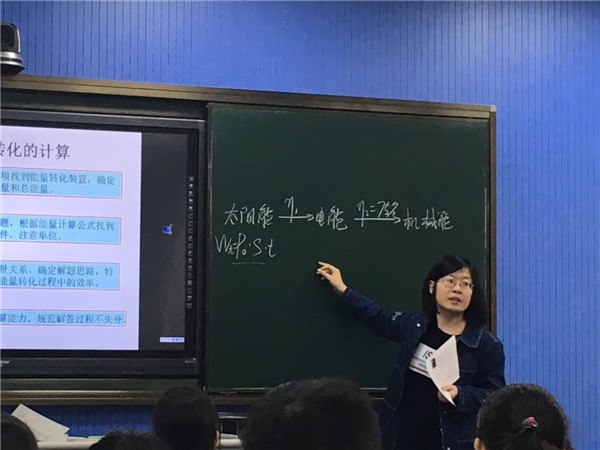 转化的计算
境找到能量转化装置，确定
量和总能量。
题，根据能量计算公式找到
件，注意单位。
量关系，确定解题思路，特
能量转化过程中的效率。
算能力，规范解答过程不失分。
太阳能 η₁→ 电能 η₂=75%→ 机械能
W=P₀·S·t
15